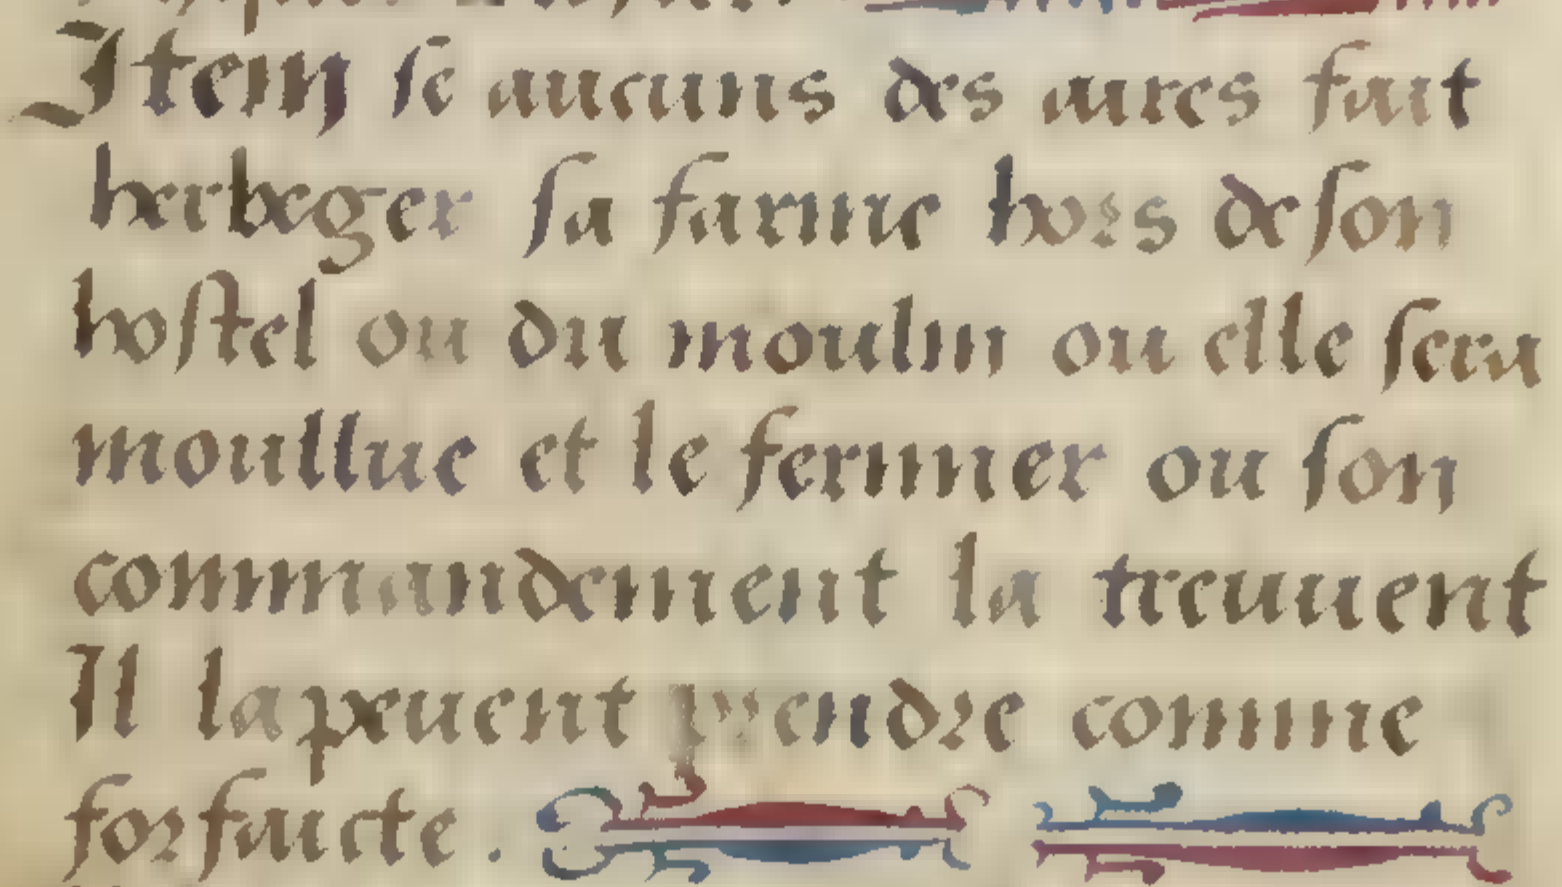 Item se aucuns des aires fait
herbeger sa farine hors de son
hostel ou du moulin ou elle sera
moullue et le fermier ou son
commandement la treuuent
Il la peuent prendre comme
forfaicte .